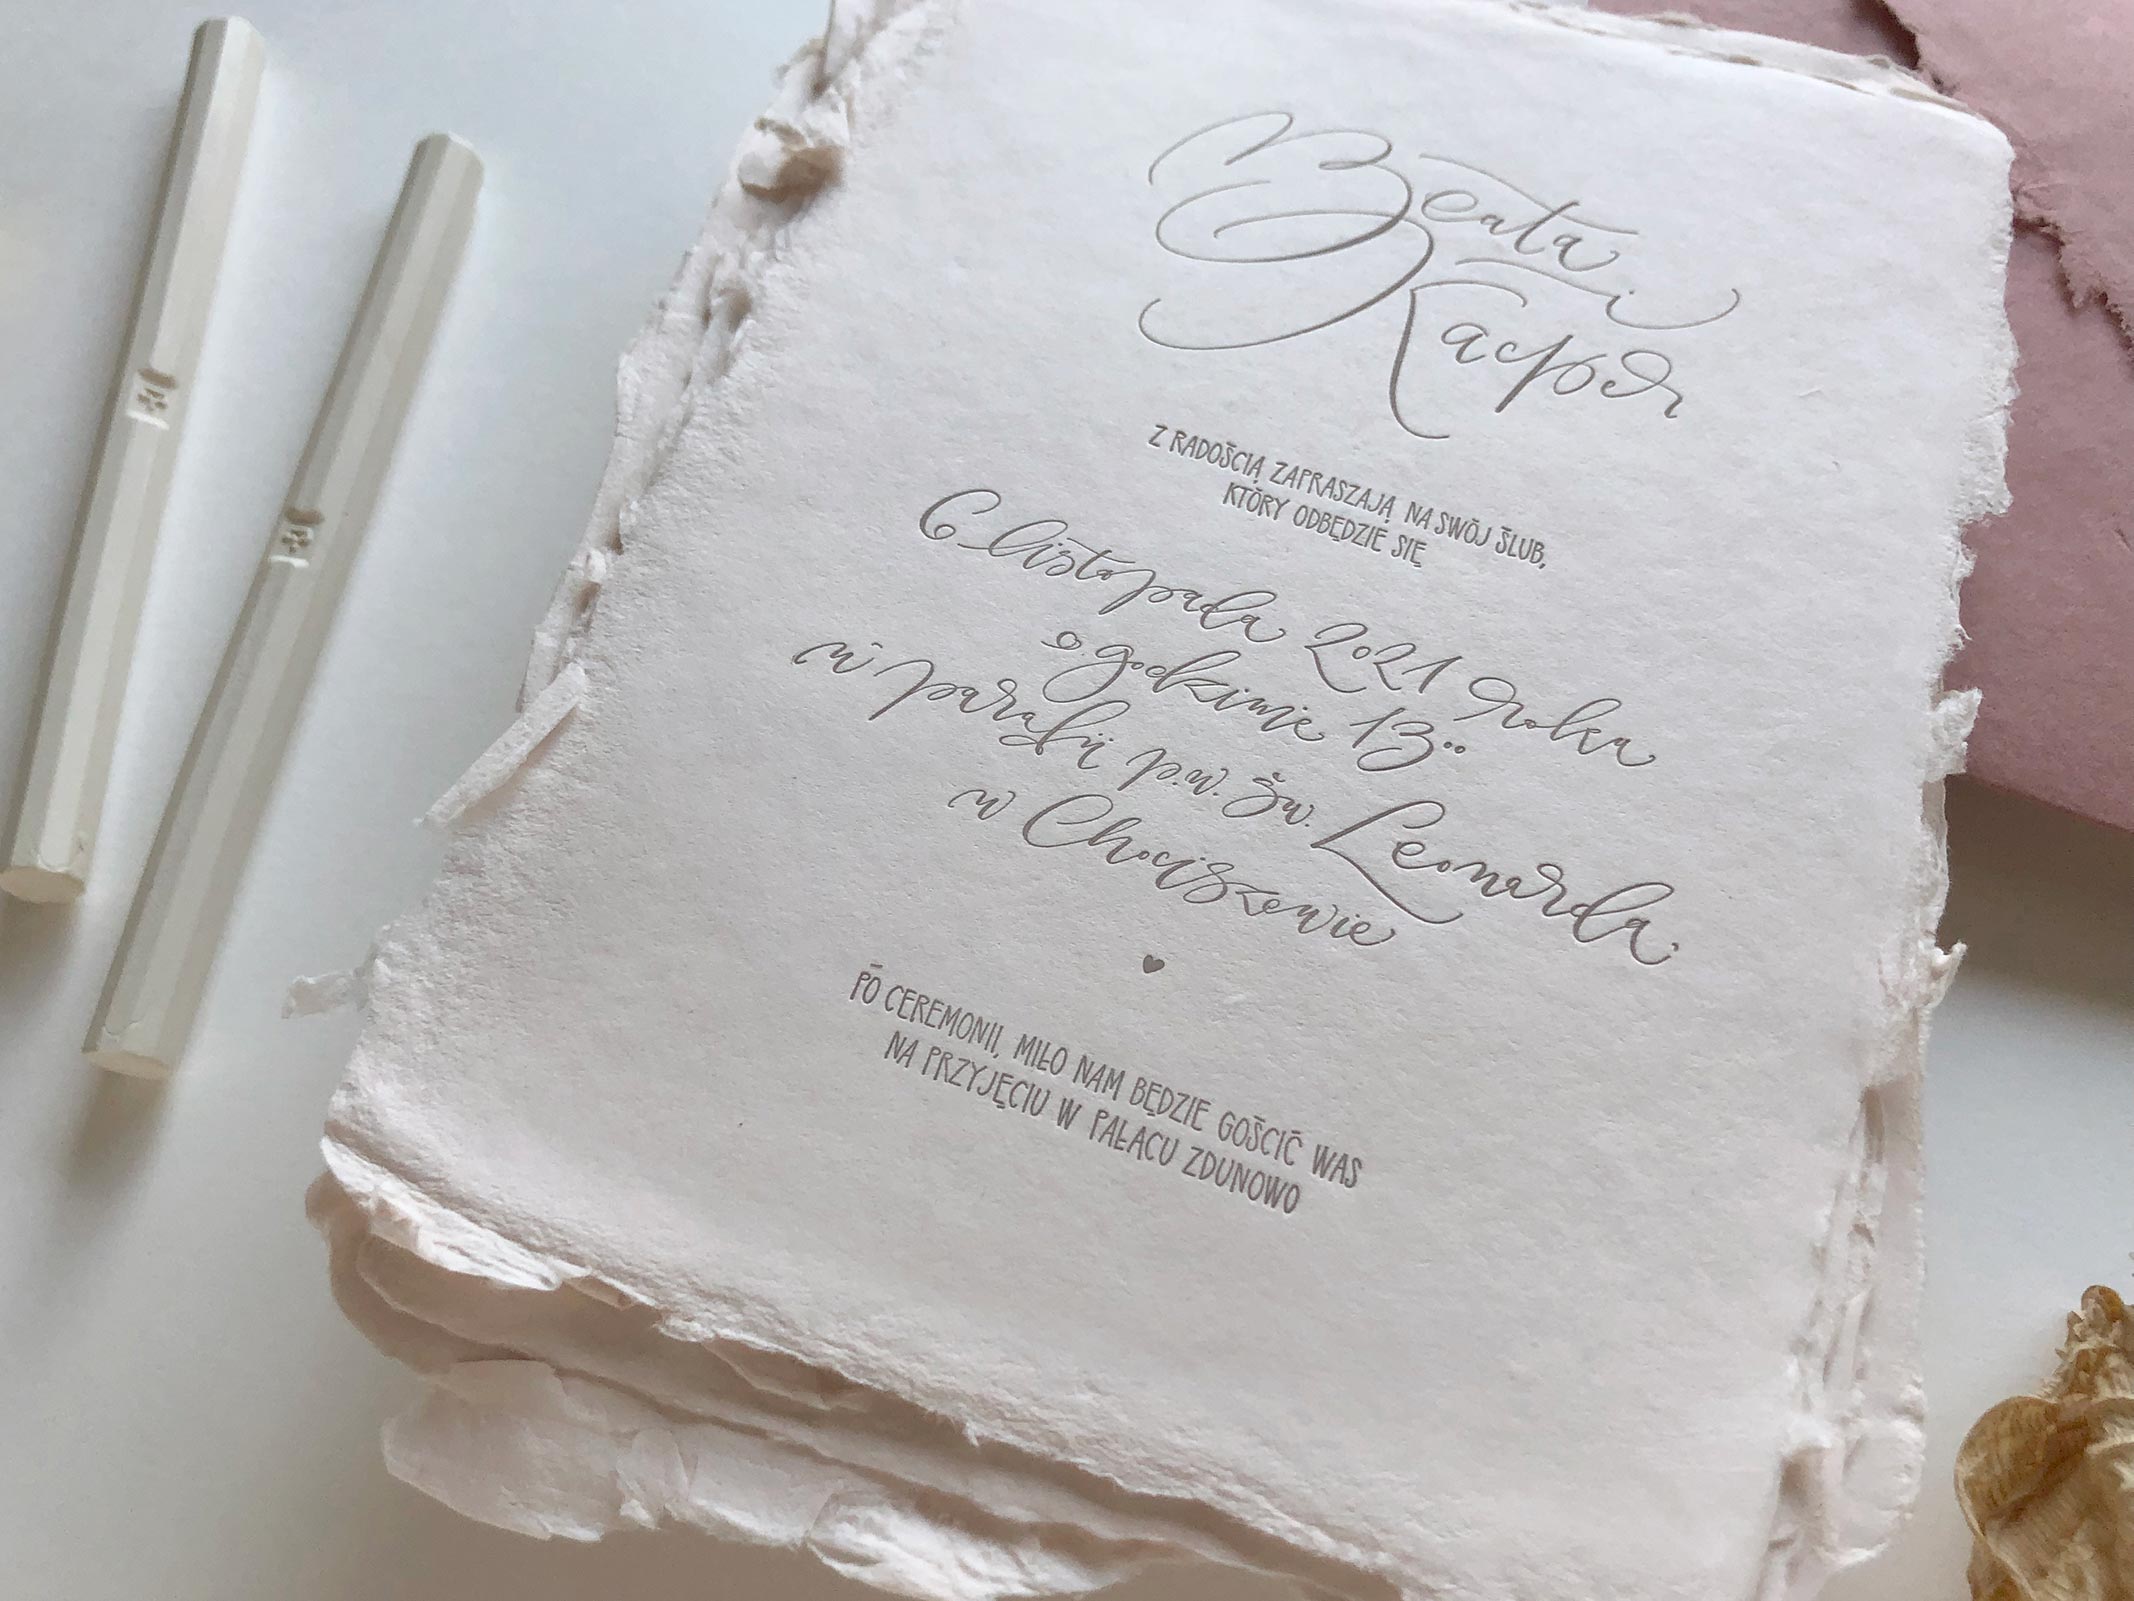 Beata i
Kacper
Z RADOŚCIĄ ZAPRASZAJĄ NA SWÓJ ŚLUB,
KTÓRY ODBĘDZIE SIĘ
6 listopada 2021 roka
o godzinie 13⁰⁰
w parafii p.w. Św. Leonarda
w Chociszewie
PO CEREMONII, MIŁO NAM BĘDZIE GOŚCIĆ WAS
NA PRZYJĘCIU W PAŁACU ZDUNOWO